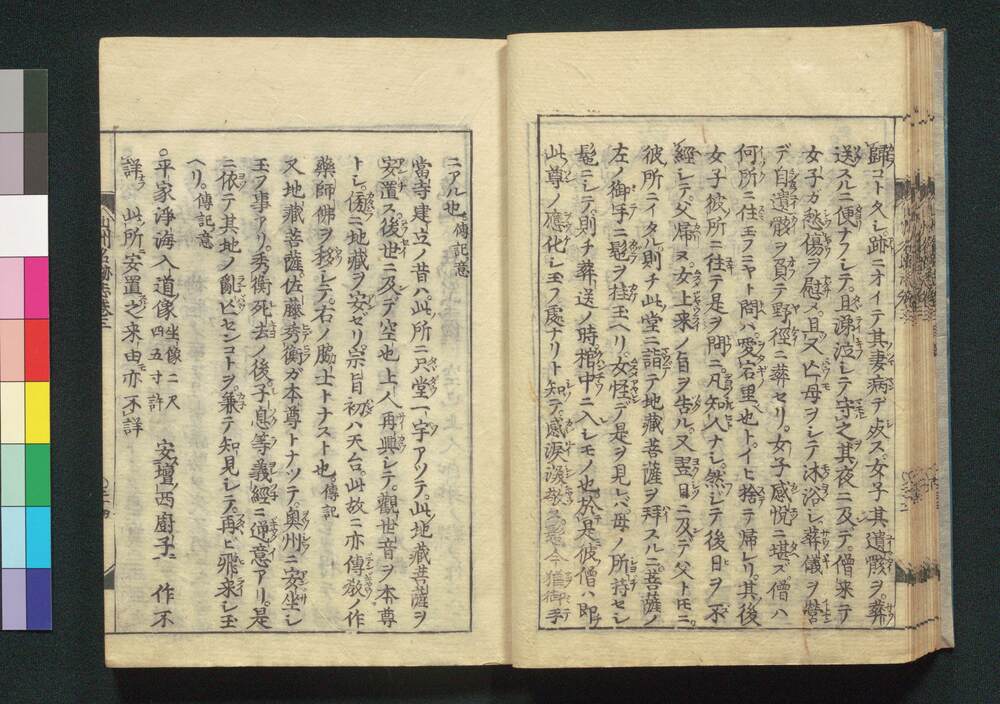 歸コト久シ。跡ニオイテ其妻病デ歿ス。女子其遺骸ヲ葬
送スルニ便ナフシテ。且涕泣シテ守之其夜ニ及デ。僧来テ
女子カ愁傷ヲ慰メ。且又亡母ヲシテ沐浴シ葬儀ヲ營
デ自遺骸ヲ負テ野徑ニ葬セリ。女子感悦ニ堪ズ僧ハ
何所ニ住玉フニヤト問ハ。愛宕里也ト。イヒ捨テ帰レリ。其後
女子彼所ニ往テ是ヲ問ニ。凡知人ナシ。然シテ後日ヲ不
經シテ父帰ヌ。女上来ノ旨ヲ告ル。又翌日ニ及デ父トモニ。
彼所ニイタル則チ此堂ニ詣テ地藏菩薩ヲ拜スルニ菩薩ノ
左ノ御手ニ鬘ヲ挂玉ヘリ。女怪デ是ヲ見レバ母ノ所持セシ
鬘ニシテ。則チ葬送ノ時棺中ニ入シモノ也。於是彼僧ハ即
此尊ノ應化シ玉フ處ナリト知テ。感涙 今猶御手
ニアル也。傳記意
當寺建立ノ昔ハ。此所ニ尺堂一宇アツテ。此地藏菩薩ヲ
安置ス。後世ニ及デ空也上人再興シテ。觀世音ヲ本尊
トシ。傍ニ地藏ヲ安セリ。宗旨初ハ天台。此故ニ亦傳敎ノ作
藥師佛ヲ移シテ。右ノ脇士トナスト也。傳記
又地藏菩薩。佐藤秀衡ガ本尊トナツテ。奥州ニ安坐シ
玉フ事アリ。秀衡死去ノ後。子息等義經ニ通意アリ。是
ニ依テ其地ノ亂ビセンコトヲ。兼テ知見シテ。再ヒ飛来シ玉
ヘリ。傳記意
○平家淨海入道像 坐像二尺四五寸許 安壇西廚子 作不
詳 此所ニ安置之来由亦不詳
山州名跡志卷三